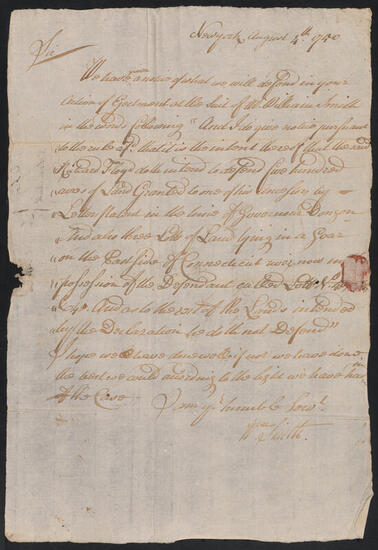 New york August 4th 1740
Sir
We have given notice of what we will defend in your
action of Ejectment at the suit of Mr William Smith
in the words following " And I do give notice pursuant
to the rule afsd that it is the intent thereof that the said
Richard Floyd doth intend to defend five hundred
acres of Land Granted to one of his Ancestors by
Letters patent in the time of Governour Dongan
And also three Lotts of Land lying in a
on the East side of Connecticut river now in
possession of the Defendant called Lotts No
& 40. And as to the rest of the Lands intended
by the Declaration he doth not Defend"
I hope we have done well if not we have done
the best we could according to the light we have had
of the Case
I am yr humble Servt
Smith.